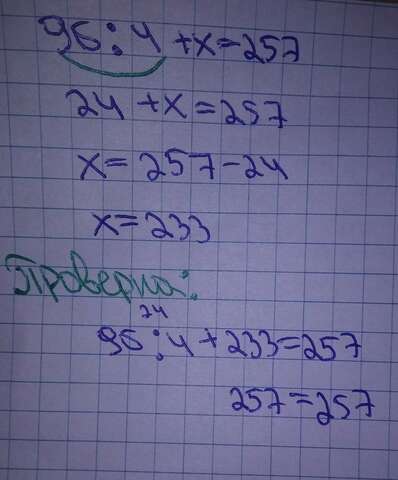 96:4+x=257
24+x=257
x=257-24
x=233
Проверка:
24
96:4+233=257
257=257